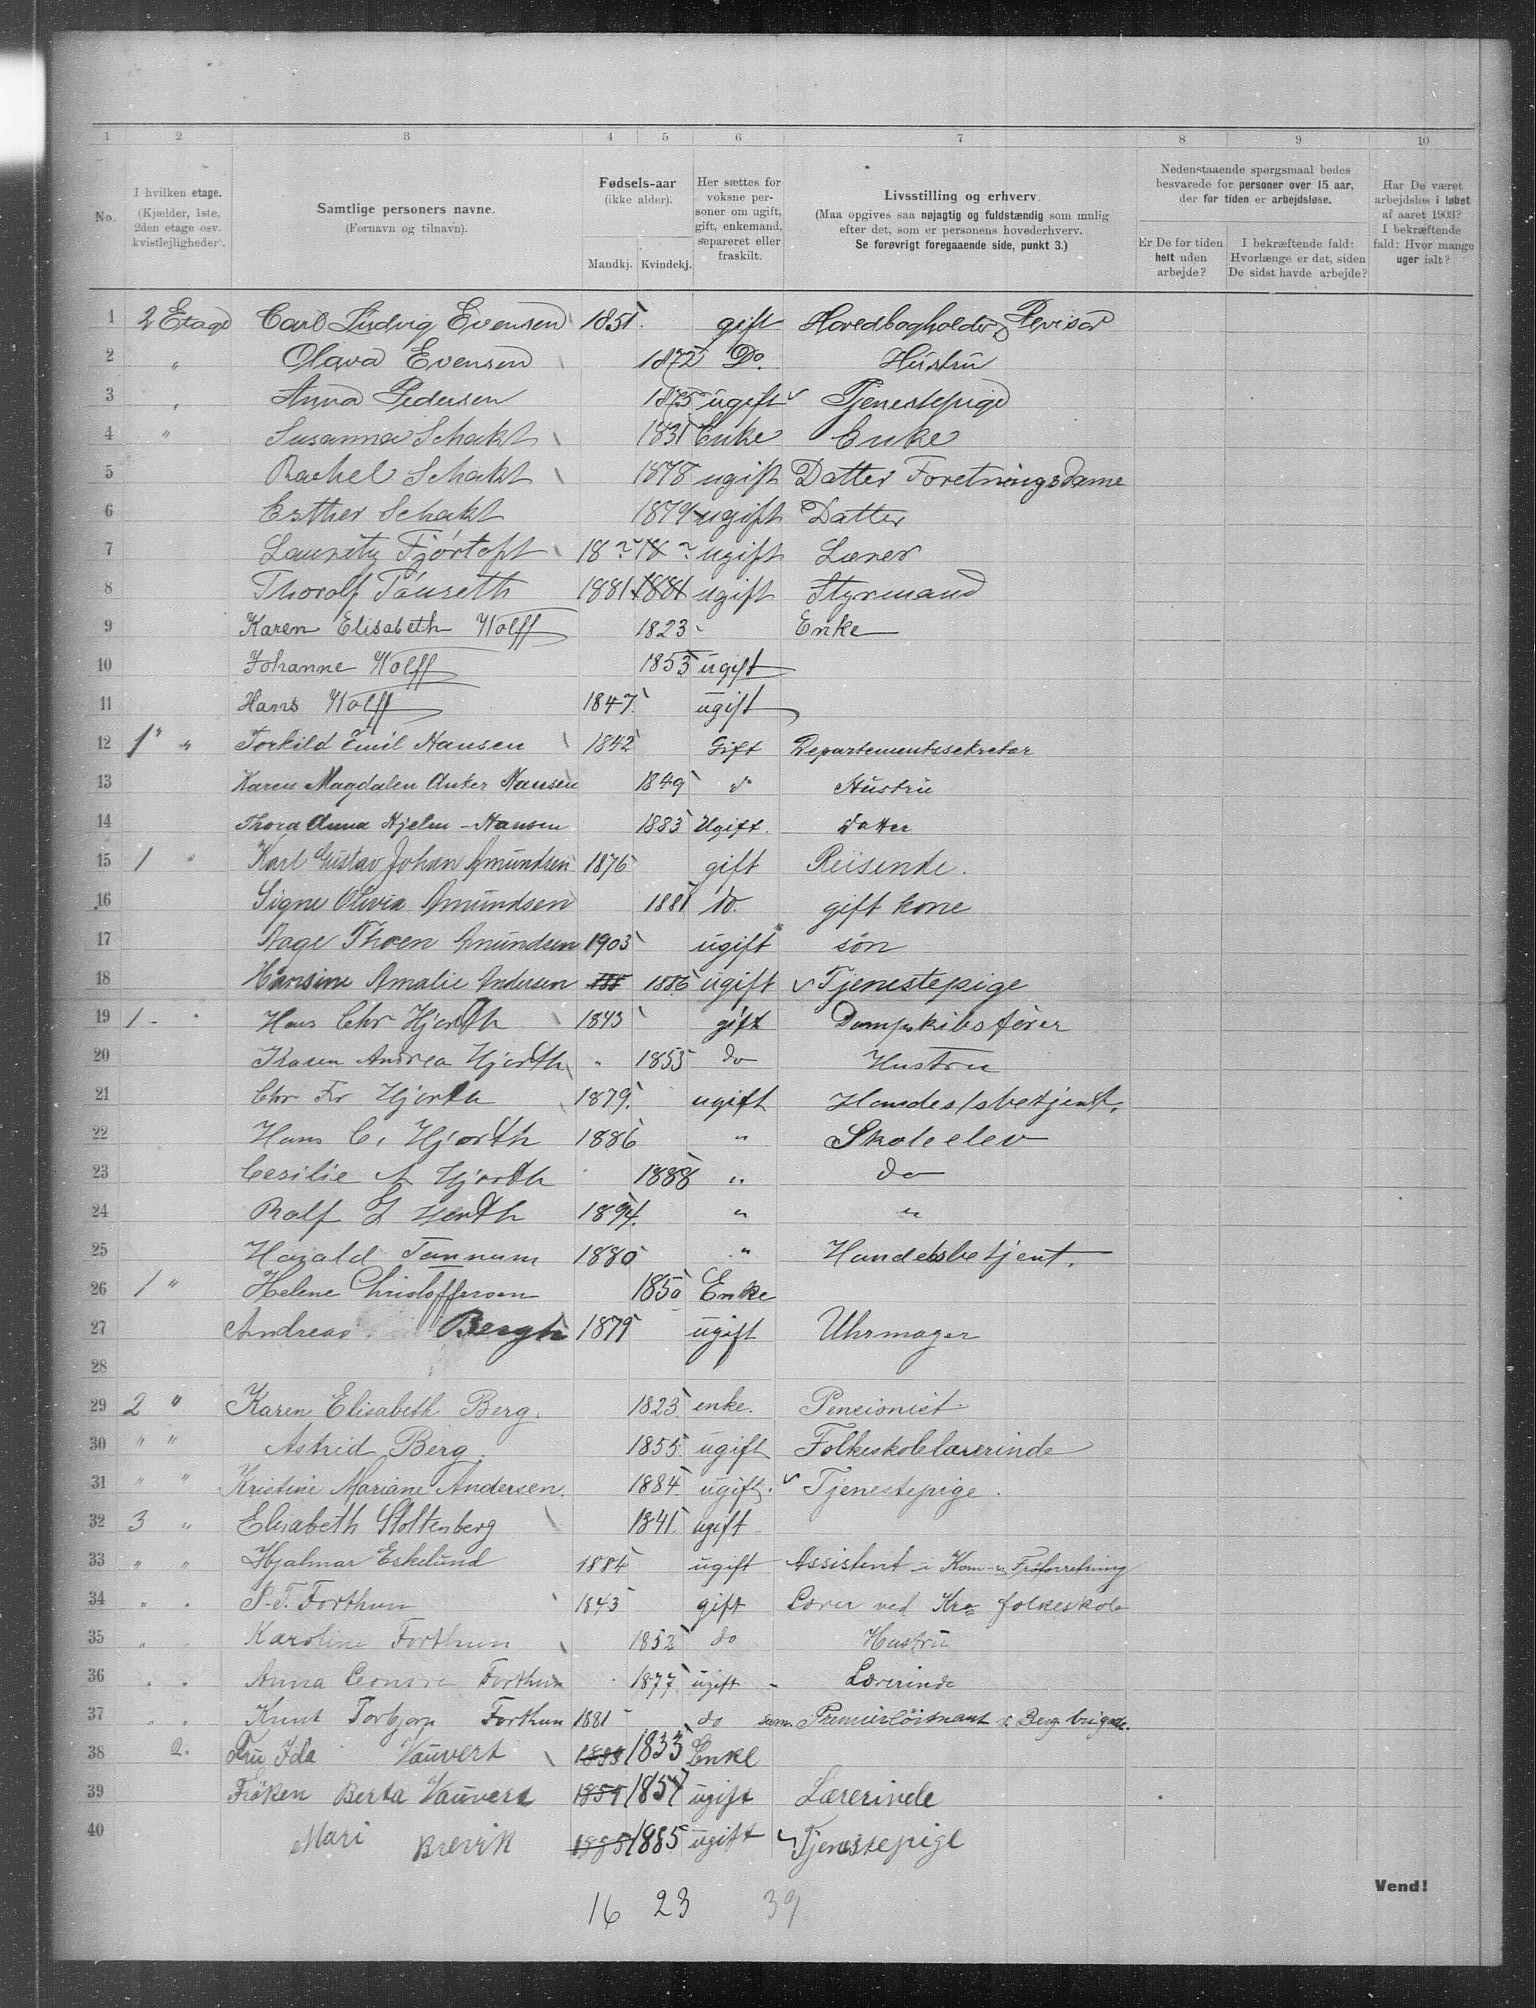 1 2 3 4 5 6 7 8 9 10
No.
I hvilken etage.
(Kjælder, 1ste,
2den etage osv.
kvistlejligheder).
Samtlige personers navne.
(Fornavn og tilnavn).
Fødsels-aar
(ikke alder).
Mandkj. Kvindekj.
Her sættes for
voksne per-
soner om ugift,
gift, enkemand,
separeret eller
fraskilt.
Livsstilling og erhverv
(Maa opgives saa nøjagtig og fuldstændig som mulig
efter det, som er personens hovederhverv.
Se forøvrigt foregaaende side, punkt 3.)
Nedenstaaende spørgsmaal bedes
besvarede for personer over 15 aar,
der for tiden er arbejdsløse.
Er De for tiden
helt uden
arbejde?
I bekræftende fald:
Hvorlænge er det, siden
De sidst havde arbejde?
Har De været
arbejdsløs i løbet
af aaret 1903?
I bekræftende
fald: Hvor mange
uger ialt?
1 2 Etage Carl Ludvig Evensen 1851 gift Hovedbogholder Revisor
2 " Olava Evensen 1872 Do. Hustru
3 " Anna Pedersen 1875 ugift Tjenestepige
4 " Susanna Schakt 1831 Enke Enke
5 Rachel Schakt 1878 ugift Datter Foretningsdame
6 Esther Schakt 1879 ugift Datter
7 Lauritz Fjørtoft 18 ? 18 ? ugift Lærer
8 Thorolf 1881 1881 ugift Styrmand
9 Karen Elisabeth Wolff 1823 Enke
10 Johanne Wolff 1853 ugift
11 Hans Wolff 1847 ugift
12 1 " Torkild Emil Hansen 1842 Gift Departementssekretær
13 Karen Magdalen Anker Hansen 1849 do Hustru
14 Thora Anna Hjelm-Hansen 1883 Ugift Datter
15 1 " Karl Gustav Johan Amundsen 1876 gift Reisende.
16 Signe Olivia Amundsen 1881 do. gift kone
17 Aage Thoen Amundsen 1903 ugift søn
18 Hansine Amalie Andersen 1886 ugift Tjenestepige
19 1 - " Hans Chr Hjorth 1843 gift Dampskibsfører
20 Karen Andrea Hjorth " 1853 do Hustru
21 Chr Fr Hjorth 1879. ugift Handelsbetjent.
22 Hans C. Hjorth 1886 " Skoleelev
23 Cecilie A Hjorth 1888 " do
24 Ralf L Hjorth 1894. " "
25 Harald Tannum 1880 " Handelsbetjent.
26 1 " Helene Christoffersen 1850 Enke
27 Andreas Bergh 1879 ugift Uhrmager
28
29 2 " Karen Elisabeth Berg. 1823 enke. Pensionist.
30 " " Astrid Berg. 1855 ugift Folkeskolelærerinde
31 " " Kristine Mariane Andersen. 1884. ugift. Tjenestepige.
32 3 " Elisabeth Stoltenberg 1841 ugift
33 " " Hjalmar Eskelund 1884 ugift Assistent i Korn- & Frøforretning
34 " " P. T. Forthun 1843 gift Lærer ved Kra folkeskole
35 " " Karoline Forthun 1852 do Hustru
36 " " Anna Forthun 1877 ugift Lærerinde
37 " " Knut Torbjørn Forthun 1881 do Premierløitnant v. Berg. brigade.
38 2. Fru Ida Vauvert 1833 Enke
39 Frøken Berta Vauvert 1859 1857 ugift Lærerinde
40 Mari Brevik 1885 1885 ugift Tjenestepige
Vend!
16 23 39